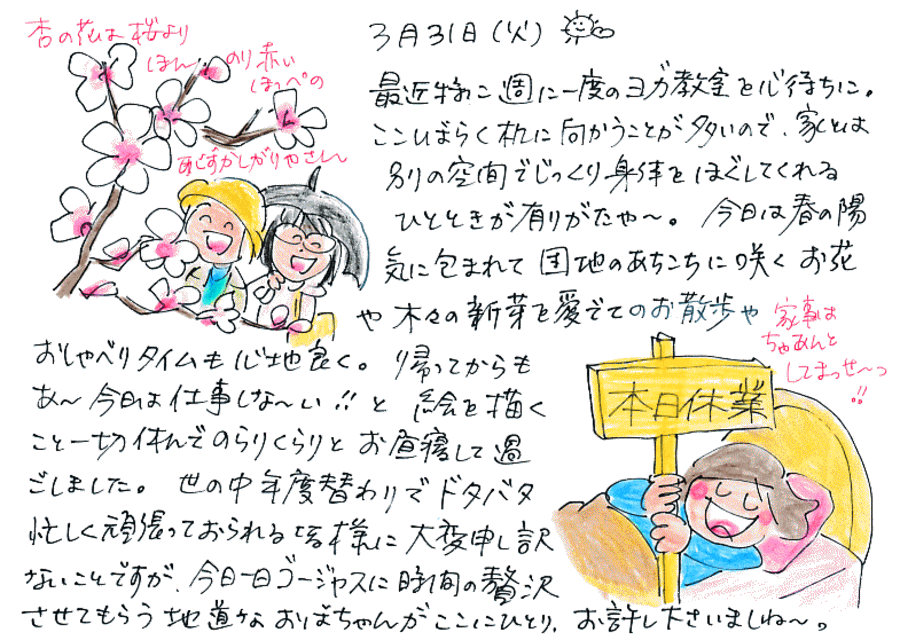 杏の花は桜より
ほんのり赤い
ほっぺの
恥ずかしがりやさん〜
3月31日(火)
最近特に週に一度のヨガ教室を心待ちに。
ここしばらく机に向かうことが多いので、家とは
別の空間でじっくり身体をほぐしてくれる
ひとときが有りがたや〜。 今日は春の陽
気に包まれて団地のあちこちに咲くお花
や木々の新芽を愛でてのお散歩や
おしゃべりタイムも心地良く。帰ってからも
あ〜今日は仕事しな〜い!!と 絵を描く
こと一切休んでのらりくらりとお昼寝して過
ごしました。 世の中年度替わりでドタバタ
忙しく頑張っておられる皆様に大変申し訳
ないことですが、今日一日ゴージャスに時間の贅沢
させてもらう地道なおばちゃんがここにひとり、お許し下さいましね〜っ
家事は
ちゃあんと
してまっせ〜っ
!!
本日休業